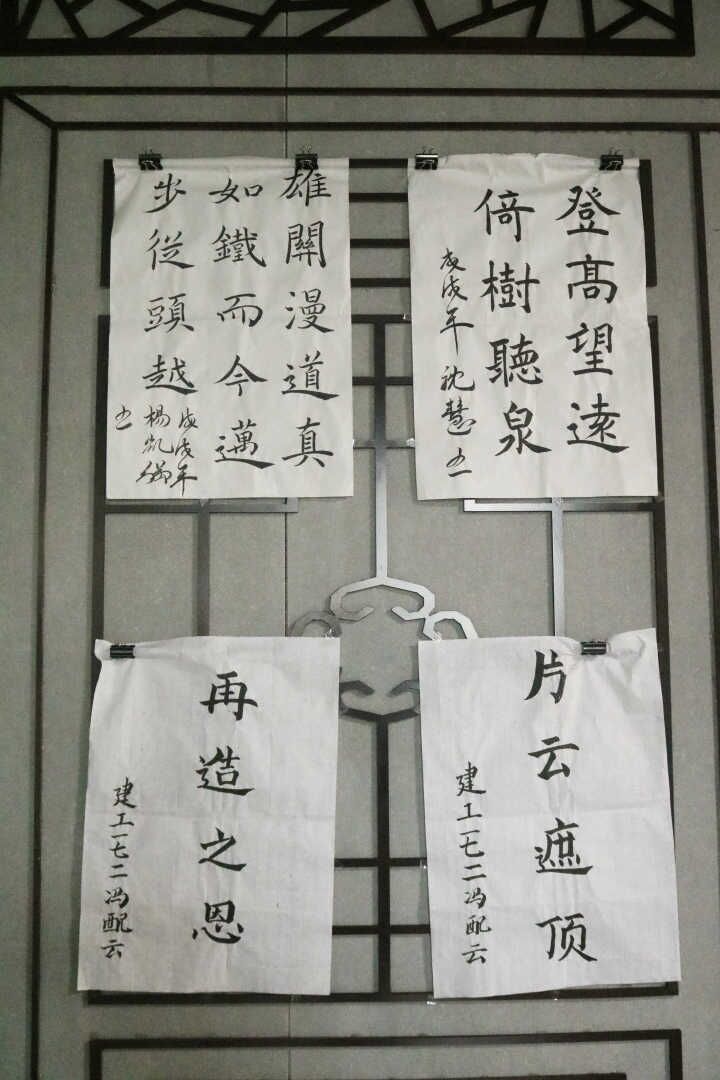 登高望遠
倚樹聽泉
戊戌年 沈慧 书
雄關漫道真
如鐵而今邁
步從頭越
戊戌年
楊凯
书
片云遮顶
建工一七二冯配云
再造之恩
建工一七二冯配云